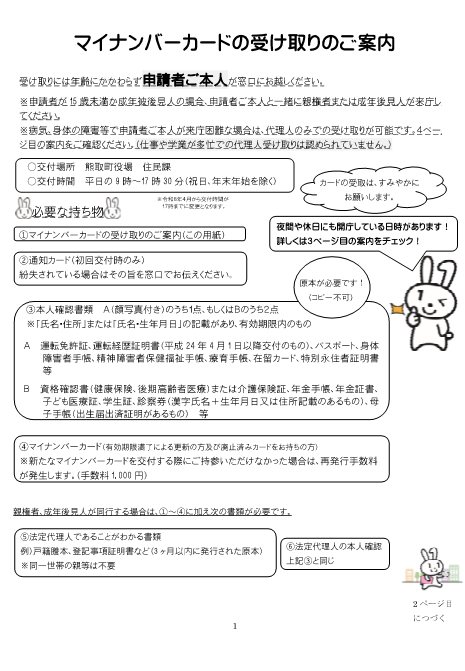 マイナンバーカードの受け取りのご案内
受け取りには年齢にかかわらず申請者ご本人が窓口にお越しください。
※申請者が15歳未満か成年被後見人の場合、申請者ご本人と一緒に親権者または成年後見人が来庁し
てください。
※病気、身体の障害等で申請者ご本人が来庁困難な場合は、代理人のみでの受け取りが可能です。4ペー
ジ目の案内をご確認ください。(仕事や学業が多忙での代理人受け取りは認められていません。)
○交付場所 熊取町役場 住民課
○交付時間 平日の9時～17時30分(祝日、年末年始を除く)
※令和8年4月から交付時間が
17時までに変更となります。
カードの受取は、すみやかに
お願いします。
必要な持ち物
夜間や休日にも開庁している日時があります!
詳しくは3ページ目の案内をチェック!
①マイナンバーカードの受け取りのご案内(この用紙)
②通知カード(初回交付時のみ)
紛失されている場合はその旨を窓口でお伝えください。
原本が必要です!
(コピー不可)
③本人確認書類 A(顔写真付き)のうち1点、もしくはBのうち2点
※「氏名・住所」または「氏名・生年月日」の記載があり、有効期限内のもの
A 運転免許証、運転経歴証明書(平成24年4月1日以降交付のもの)、パスポート、身体
障害者手帳、精神障害者保健福祉手帳、療育手帳、在留カード、特別永住者証明書
等
B 資格確認書(健康保険、後期高齢者医療)または介護保険証、年金手帳、年金証書、
子ども医療証、学生証、診察券(漢字氏名＋生年月日又は住所記載のあるもの)、母
子手帳(出生届出済証明があるもの) 等
④マイナンバーカード(有効期限満了による更新の方及び廃止済みカードをお持ちの方)
※新たなマイナンバーカードを交付する際にご持参いただけなかった場合は、再発行手数料
が発生します。(手数料1,000円)
親権者、成年後見人が同行する場合は、①～④に加え次の書類が必要です。
⑤法定代理人であることがわかる書類
例)戸籍謄本、登記事項証明書など(3ヶ月以内に発行された原本)
※同一世帯の親等は不要
⑥法定代理人の本人確認
上記③と同じ
2ページ目
につづく
1